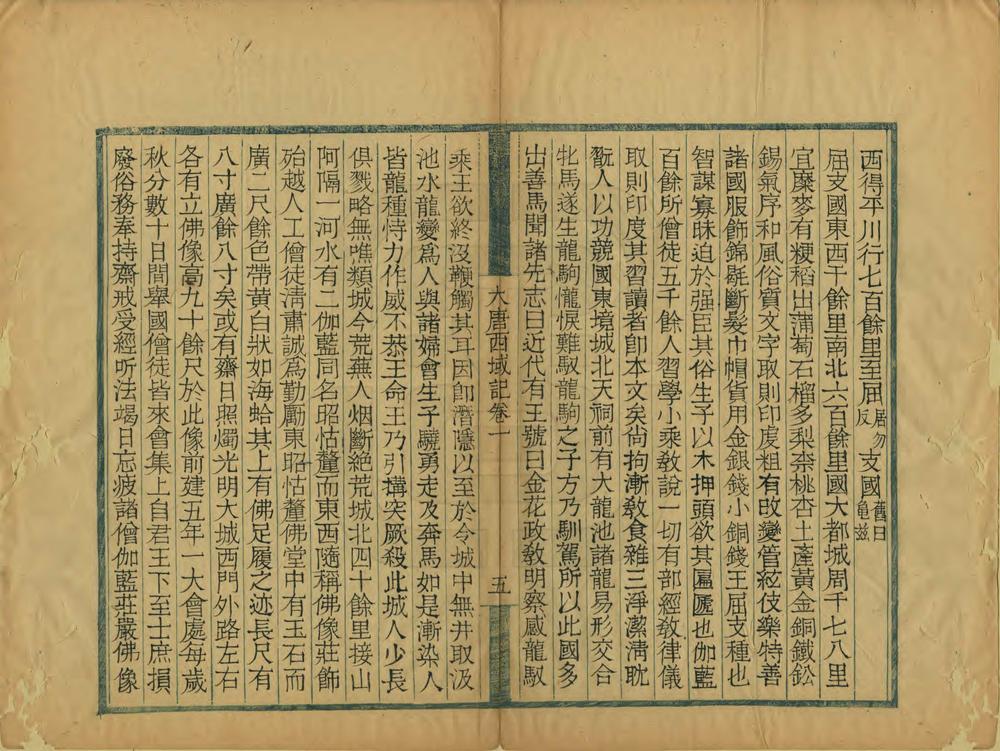 西得平川行七百餘里至屈居勿反支國舊曰龜茲
屈支國東西千餘里南北六百餘里國大都城周千七八里
宜糜麥有粳稻出蒲萄石榴多梨柰桃杏土產黃金銅鐵鉛
錫氣序和風俗質文字取則印度粗有改變管絃伎樂特善
諸國服飾錦㲲斷髮巾帽貨用金銀錢小銅錢王屈支種也
智謀寡昧迫於强臣其俗生子以木押頭欲其匾㔸也伽藍
百餘所僧徒五千餘人習學小乘教說一切有部經教律儀
取則印度其習讀者卽本文矣尙拘漸教食雜三淨潔淸耽
翫人以功競國東境城北天祠前有大龍池諸龍易形交合
牝馬遂生龍駒㦬悷難馭龍駒之子方乃馴駕所以此國多
出善馬聞諸先志曰近代有王號曰金花政教明察感龍馭
大唐西域記卷一
五
乘王欲終沒鞭觸其耳因卽潛隱以至於今城中無井取汲
池水龍變爲人與諸婦會生子驍勇走及奔馬如是漸染人
皆龍種恃力作威不恭王命王乃引搆突厥殺此城人少長
俱戮略無噍類城今荒蕪人烟斷絶荒城北四十餘里接山
阿隔一河水有二伽藍同名昭怙釐而東西隨稱佛像莊飾
殆越人工僧徒淸肅誠爲勤勵東昭怙釐佛堂中有玉石而
廣二尺餘色帶黃白狀如海蛤其上有佛足履之迹長尺有
八寸廣餘八寸矣或有齋日照燭光明大城西門外路左右
各有立佛像高九十餘尺於此像前建五年一大會處每歲
秋分數十日閒舉國僧徒皆來會集上自君王下至士庶損
廢俗務奉持齋戒受經听法竭日忘疲諸僧伽藍莊嚴佛像